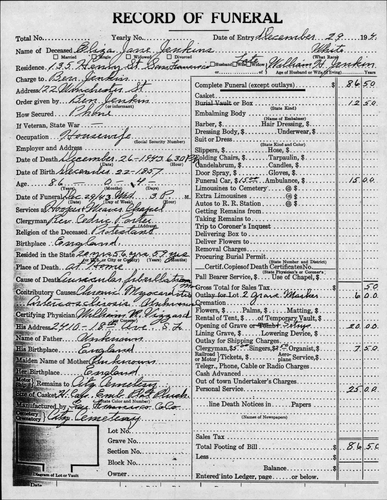 RECORD OF FUNERAL
Total No. Yearly No. Date of Entry December 29 194
Name of Deceased Eliza Jane Jenkins White
Married Single Widowed Divorced (What Race)
Residence 735 Henry St. San Francisco Husband Late William H. Jenkin
Charge to Ben Jenkin
Age of Husband or Wife (if living) Years
Address 22 Winchester St.
Order given by Ben Jenkin
(or informant)
How Secured Phone
If Veteran, State War
Occupation Housewife
Employer and Address
Date of Death December 26-1943 6:30 P.M.
Date of Birth December 22-1857
Age 86 0 4
Date of Funeral Dec 29/43 Wed. 3 P.M.
Services at August Chapel
Clergyman Rev. Cedric Porter
Religion of the Deceased Protestant
Birthplace England
Resided in the State 20 yrs 56 yrs 57 yrs
Place of Death At Home
Cause of Death Auricular fibrillation
Contributory Causes Chronic Myocarditis
Arteriosclerosis
Certifying Physician William N.
His Address 2410-18th Ave S.F.
Name of Father Unknown
His Birthplace England
Maiden Name of Mother Unknown
Her Birthplace England
Remains to City Cemetery
Size of Casket
Manufactured by San Francisco Ca Co.
Cemetery City Cemetery
Lot No.
Grave No.
Section No.
Block No.
Owner
Diagram of Lot or Vault
Complete Funeral (except outlays) $ 86 50
Casket
Burial Vault or Box 12 50
(State Kind)
Embalming Body
(Name of Embalmer)
Barber, $ Hair Dressing, $
Dressing Body, $ Underwear, $
Suit or Dress
(State Kind and Color)
Slippers, $ Hose, $
Folding Chairs, $ Tarpaulin, $
Candelabrum, $ Candles, $
Door Spray, $ Gloves, $
Funeral Car, $ 15.00 Ambulance, $ 15.00
Limousines to Cemetery @ $
Extra Limousines @ $
Autos to R. R. Station @ $
Getting Remains from
Taking Remains to
Trip to Coroner's Inquest
Delivering Box to
Deliver Flowers to
Removal Charges
Procuring Burial Permit
(State Physician's or Coroner's)
Certif. Copies of Death Certificates No.
(State which)
Pall Bearer Service, $ Use of Chapel, $
Gross Total for Sales Tax $ 50
Outlay for Lot 2 Grave Marker 6 00
Cremation
Flowers, $ Palms, $ Matting, $
Rental of Tent, $ of Temporary Vault, $
Opening of Grave or Tomb, 20 00
Lining Grave, $ Lowering Device, $
Outlay for Shipping Charges
Clergyman, $5.00 Singers, $ Organist, $ 7 50
Railroad or Motor Tickets, $ Aeroplane Service, $
Telegr., Phone, Cable or Radio Charges
Cash Advanced
Out of town Undertaker's Charges
Personal Service 25.00
line Death Notices in Papers
(Names of Newspapers)
Sales Tax
Total Footing of Bill $ 86 50
Less
Balance
Entered into Ledger, page or below.